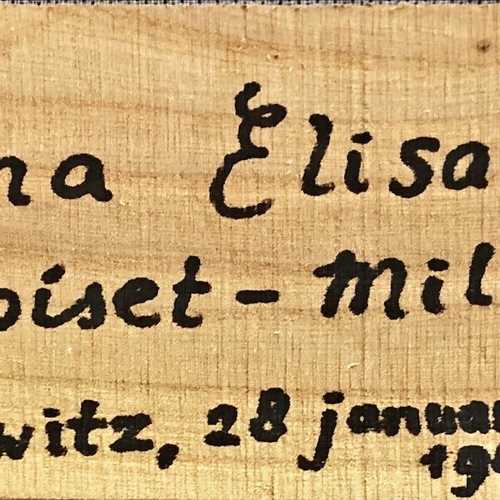 na Elisa
oiset - Mil
witz, 28 januar
19